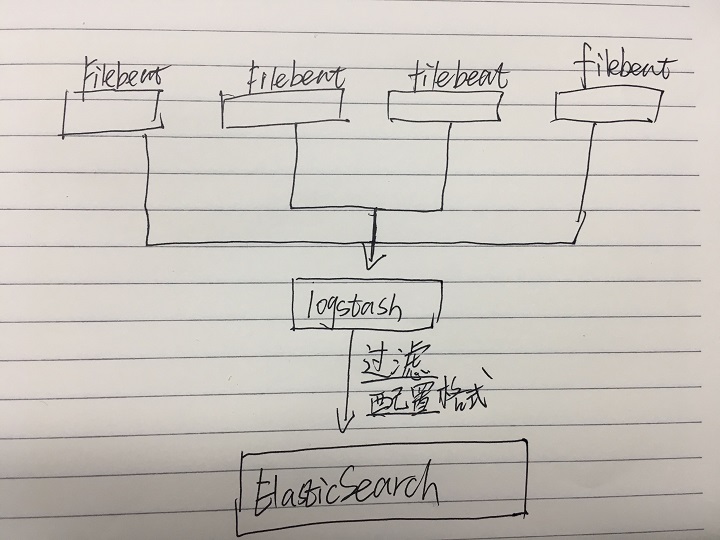 Filebeat
Filebeat
filebeat
filebeat
logstash
过滤
配置格式
ElasticSearch